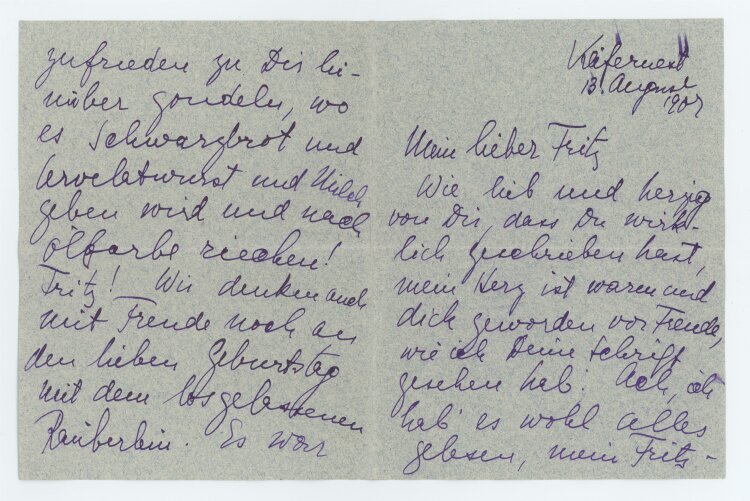 Käfernest
13. August
1907
Mein lieber Fritz
Wie lieb und herzig
von Dir, dass Du wirk-
lich geschrieben hast,
mein Herz ist warm und
dick geworden vor Freude,
wie ich Deine Schrift
gesehen hab! Ach, ich
hab' es wohl alles
gelesen, mein Fritz-
zufrieden zu Dir hi-
nüber gondeln, wo
es Schwarzbrot und
Cervelatwurst und Milch
geben wird und nach
Ölfarbe riechen!
Fritz! Wir denken auch
mit Freude noch an
den lieben Geburtstag
mit dem losgelassenen
Es war